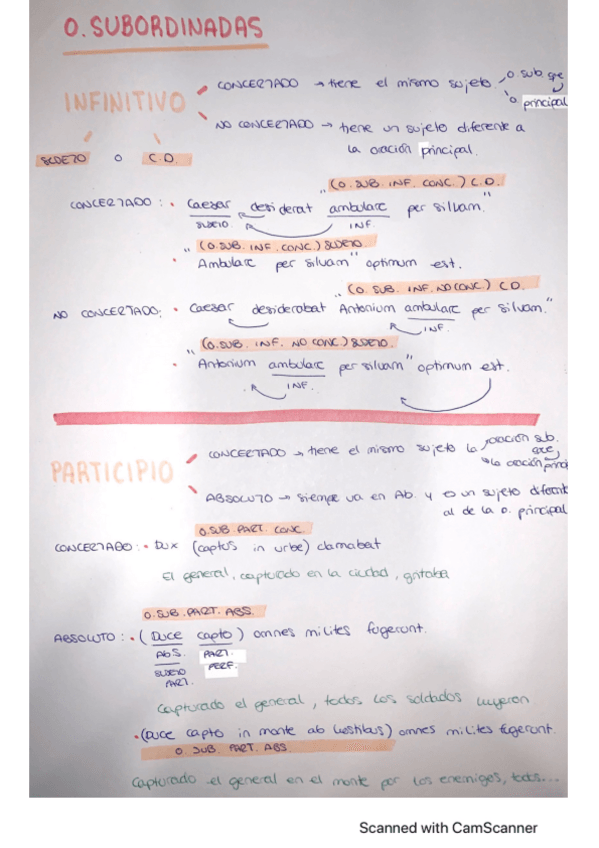 O. SUBORDINADAS
INFINITIVO
CONCERTADO → tiene el mismo sujeto o sub. que
o principal
NO CONCERTADO → tiene un sujeto diferente a
la oración principal.
SUJETO o C.D.
(O. SUB. INF. CONC.) C.D.
CONCERTADO: • Caesar desiderat "ambulare per silvam"
SUJETO INF.
(O. SUB. INF. CONC.) SUJETO
• "Ambulare per silvam" optimum est.
(O. SUB. INF. NO CONC.) C.D.
NO CONCERTADO: • Caesar desiderabat "Antonium ambulare per silvam."
INF.
(O. SUB. INF. NO CONC.) SUJETO.
• "Antonium ambulare per silvam" optimum est.
INF.
PARTICIPIO
CONCERTADO → tiene el mismo sujeto la oración sub.
que
la oración princi
ABSOLUTO → siempre va en Ab. y un sujeto diferent
al de la o. principal
O. SUB. PART. CONC.
CONCERTADO: • Dux (captus in urbe) clamabat
El general, capturado en la ciudad, gritaba
O. SUB. PART. ABS.
ABSOLUTO: • (Duce capto) omnes milites fugerunt.
Abs. PART.
SUJETO PERF.
PART.
Capturado el general, todos los soldados huyeron
• (Duce capto in monte ab hostibus) omnes milites fugerunt.
O. SUB. PART. ABS.
Capturado el general en el monte por los enemigos, todos...
Scanned with CamScanner